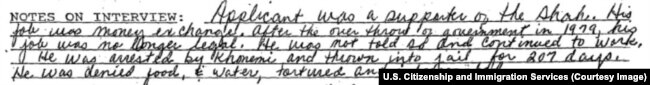 NOTES ON INTERVIEW: Applicant was a supporter of the Shah. His
job was money exchange. After the over throw of government in 1979, his
job was no longer legal. He was not told so and continued to work.
He was arrested by Khomeni and thrown into jail for 207 days.
He was denied food, & water, tortured an
U.S. Citizenship and Immigration Services (Courtesy Image)